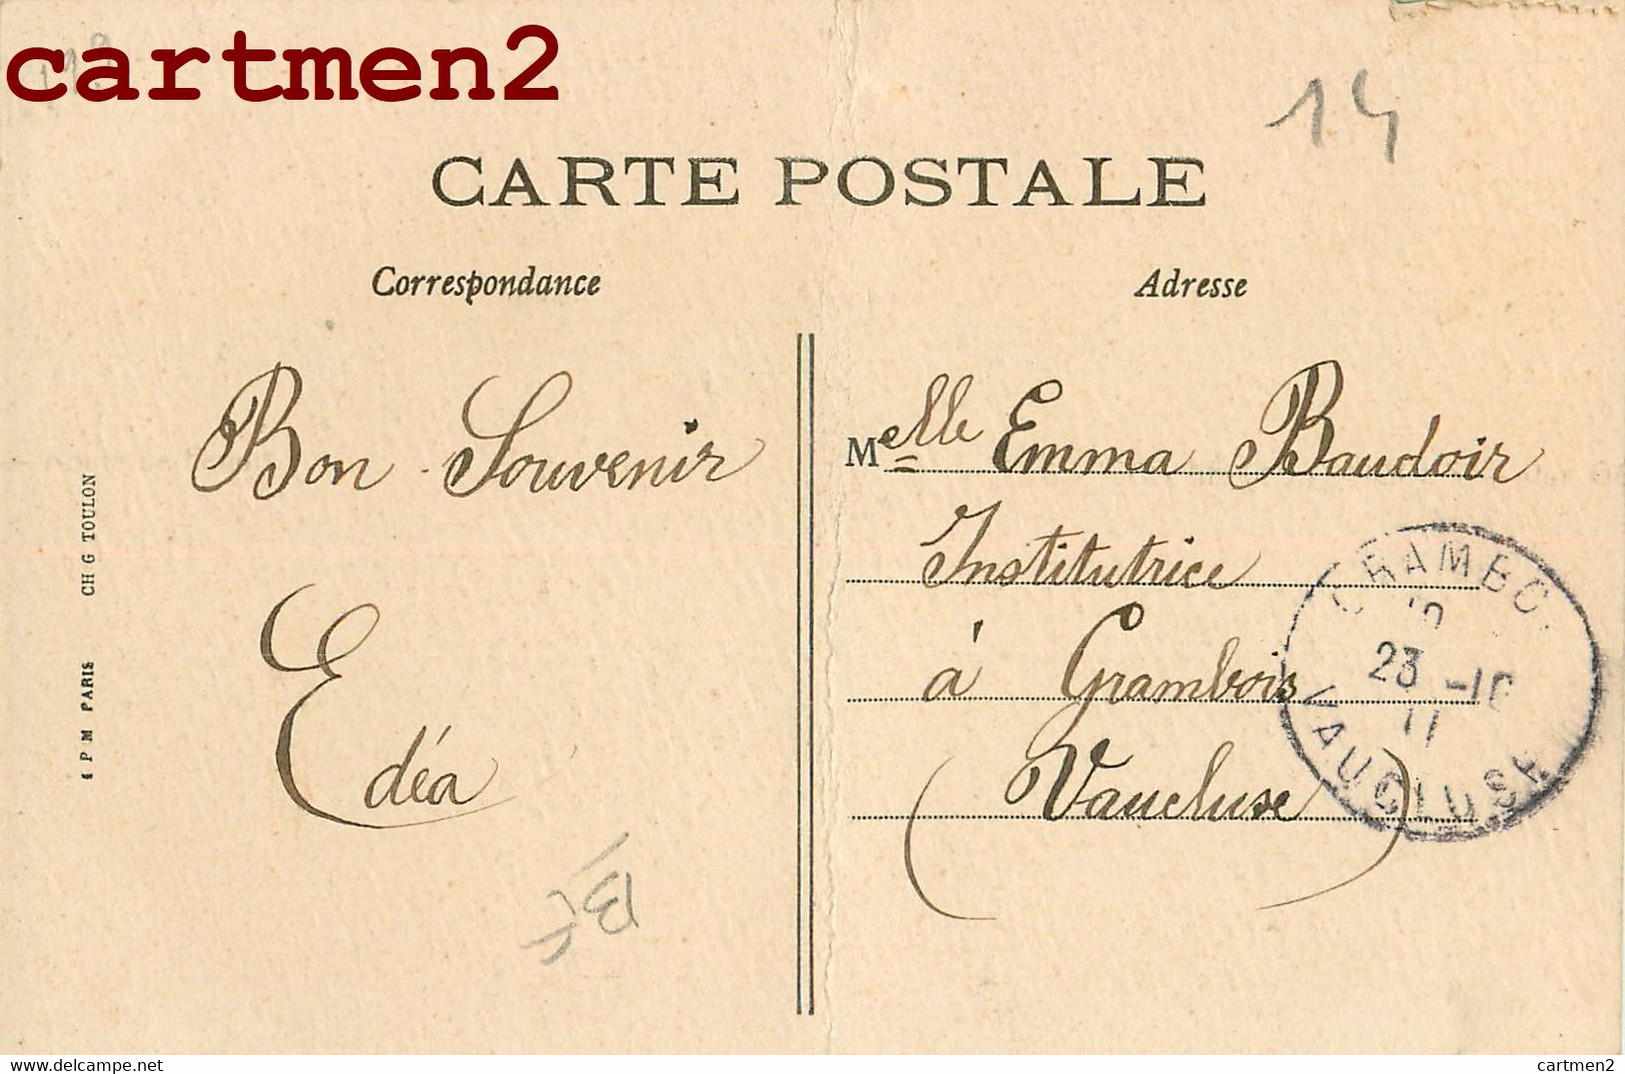 cartmen2
14
CARTE POSTALE
Correspondance
Adresse
Bon Souvenir
Edéa
Melle Emma Baudoir
Institutrice
à Grambois
(Vaucluse)
CH G TOULON
PM PARIS
23 -10
11
VAUCLUSE
https://www.delcampe.net
cartmen2